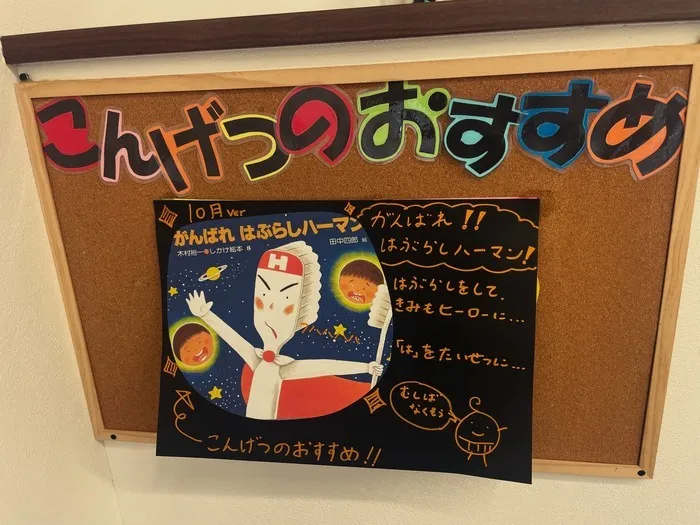 こんげつのおすすめ
10月 ver
がんばれ はぶらしハーマン
木村裕一●しかけ絵本 作
田中四郎 絵
H
がんばれ!!
はぶらしハーマン!
はぶらしをして、
きみもヒーローに…
「は」をたいせつに…
むしば
なくそう
こんげつのおすすめ!!